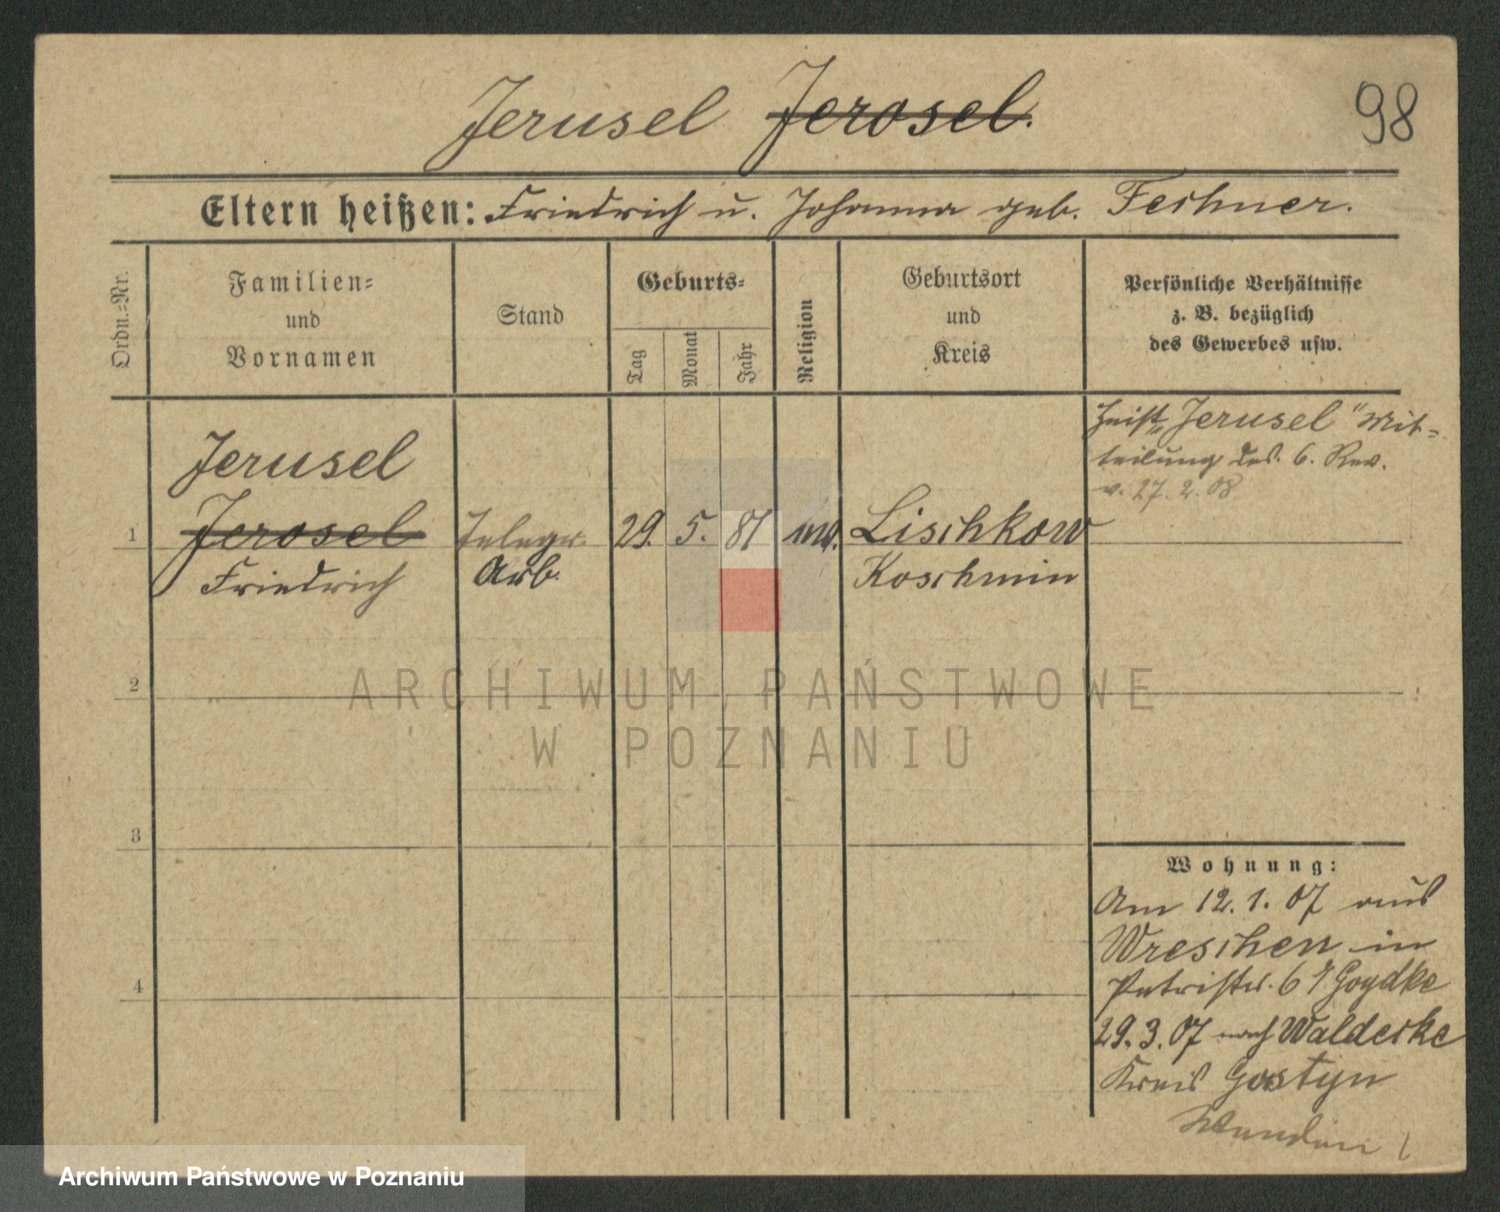 98
Jerusel Jerosel.
Eltern heißen: Friedrich u. Johanna geb. Feshner.
Ordn.-Nr.
Familien-
und
Vornamen
Stand
Geburts-
Tag
Monat
Jahr
Religion
Geburtsort
und
Kreis
Persönliche Verhältnisse
z. B. bezüglich
des Gewerbes usw.
heißt „Jerusel" Mit-
teilung des 6. Rev.
v. 27. 2. 08
Jerusel
1 Jerosel Telegr. 29. 5. 87 Lischkow
Friedrich Arb. Koschmin
2
3
4
Wohnung:
Am 12. 1. 07 aus
Wreschen in
Patristr. 6
29. 3. 07 nach Walderske
Kreis Gostyn
ARCHIWUM PAŃSTWOWE
W POZNANIU
Archiwum Państwowe w Poznaniu